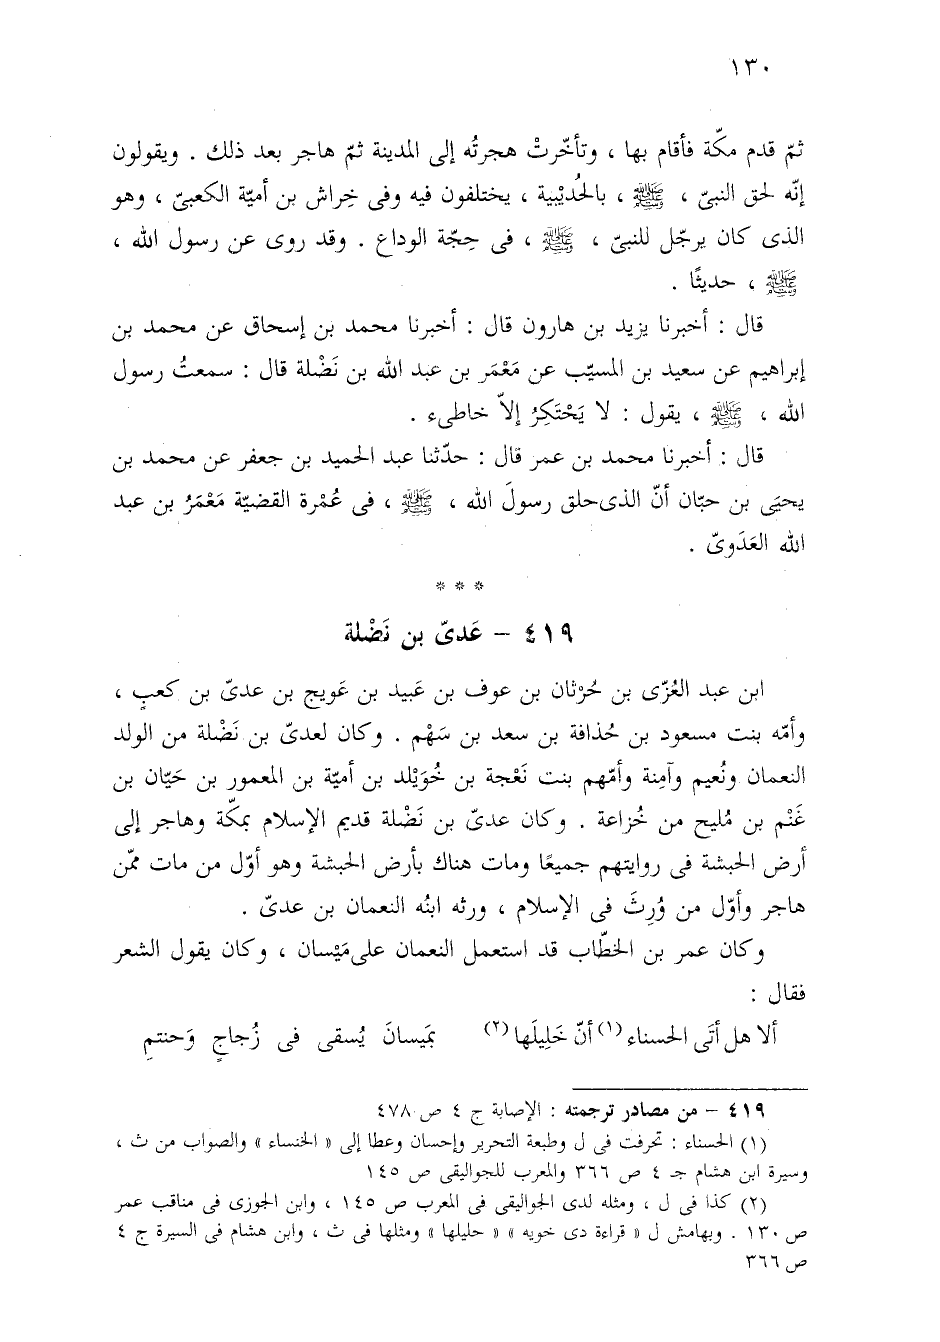 ١٣٠
ثمّ قدم مكّة فأقام بها ، وتأخّرتْ هجرتُه إلى المدينة ثمّ هاجر بعد ذلك . ويقولون
إنّه لحق النبىّ ، ﷺ ، بالحُدَيْبية ، يختلفون فيه وفى خِراش بن أميّة الكعبىّ ، وهو
الذى كان يرجّل للنبىّ ، ﷺ ، فى حِجّة الوداع . وقد روى عن رسول الله ،
ﷺ ، حديثًا .
قال : أخبرنا يزيد بن هارون قال : أخبرنا محمد بن إسحاق عن محمد بن
إبراهيم عن سعيد بن المسيّب عن مَعْمَر بن عبد الله بن نَضْلة قال : سمعتُ رسول
الله ، ﷺ ، يقول : لا يَحْتَكِرُ إلاّ خاطىء .
قال : أخبرنا محمد بن عمر قال : حدّثنا عبد الحميد بن جعفر عن محمد بن
يحيَى بن حبّان أنّ الذى حلق رسولَ الله ، ﷺ ، فى عُمْرة القضيّة مَعْمَرُ بن عبد
الله العَدَوىّ .
* * *
٤١٩ – عَدىّ بن نَضْلة
ابن عبد العُزّى بن حُرْثان بن عوف بن عَبيد بن عَويج بن عدىّ بن كعبٍ ،
وأمّه بنت مسعود بن حُذافة بن سعد بن سَهْم . وكان لعدىّ بن نَضْلة من الولد
النعمان ونُعيم وآمِنة وأمّهم بنت نَعْجة بن خُوَيْلد بن أميّة بن المعمور بن حَيّان بن
غَنْم بن مُليح من خُزاعة . وكان عدىّ بن نَضْلة قديم الإسلام بمكّة وهاجر إلى
أرض الحبشة فى روايتهم جميعًا ومات هناك بأرض الحبشة وهو أوّل من مات ممّن
هاجر وأوّل من وُرِثَ فى الإسلام ، ورثه ابنُه النعمان بن عدىّ .
وكان عمر بن الخطّاب قد استعمل النعمان على مَيْسان ، وكان يقول الشعر
فقال :
ألا هل أتَى الحسناء (١) أنّ خَلِيلَها (٢) بمَيسانَ يُسقى فى زُجاجٍ وَحنتمِ
٤١٩ – من مصادر ترجمته : الإصابة ج ٤ ص ٤٧٨
(١) الحسناء : تحرفت فى ل وطبعة التحرير وإحسان وعطا إلى « الخنساء » والصواب من ث ،
وسيرة ابن هشام جـ ٤ ص ٣٦٦ والمعرب للجواليقى ص ١٤٥
(٢) كذا فى ل ، ومثله لدى الجواليقى فى المعرب ص ١٤٥ ، وابن الجوزى فى مناقب عمر
ص ١٣٠ . وبهامش ل « قراءة دى خويه » « حليلها » ومثلها فى ث ، وابن هشام فى السيرة ج ٤
ص ٣٦٦